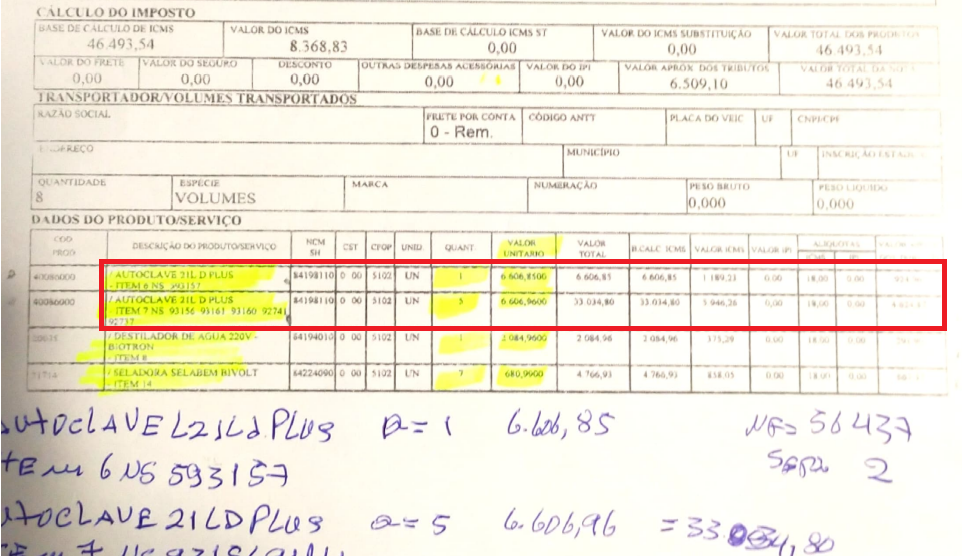 CÁLCULO DO IMPOSTO
BASE DE CÁLCULO DE ICMS VALOR DO ICMS BASE DE CÁLCULO ICMS ST VALOR DO ICMS SUBSTITUIÇÃO VALOR TOTAL DOS PRODUTOS
46.493,54 8.368,83 0,00 0,00 46.493,54
VALOR DO FRETE VALOR DO SEGURO DESCONTO OUTRAS DESPESAS ACESSÓRIAS VALOR DO IPI VALOR APROX DOS TRIBUTOS VALOR TOTAL DA NOTA
0,00 0,00 0,00 0,00 0,00 6.509,10 46.493,54
TRANSPORTADOR/VOLUMES TRANSPORTADOS
RAZÃO SOCIAL FRETE POR CONTA CÓDIGO ANTT PLACA DO VEIC UF CNPJ/CPF
0 - Rem.
ENDEREÇO MUNICÍPIO UF INSCRIÇÃO ESTADUAL
QUANTIDADE ESPÉCIE MARCA NUMERAÇÃO PESO BRUTO PESO LÍQUIDO
8 VOLUMES 0,000 0,000
DADOS DO PRODUTO/SERVIÇO
COD PROD DESCRIÇÃO DO PRODUTO/SERVIÇO NCM SH CST CFOP UNID. QUANT. VALOR UNITARIO VALOR TOTAL B.CALC ICMS VALOR ICMS VALOR IPI ALIQUOTAS
ICMS IPI
40086000 / AUTOCLAVE 21L D PLUS 84198110 0 00 5102 UN 1 6.606,8500 6.606,85 6.606,85 1 189,23 0,00 18,00 0,00
- ITEM 6 NS 593157
40086000 / AUTOCLAVE 21L D PLUS 84198110 0 00 5102 UN 5 6.606,9600 33.034,80 33.034,80 5 946,26 0,00 18,00 0,00
- ITEM 7 NS 93156 93161 93160 92741
92737
/ DESTILADOR DE AGUA 220V - 84194010 0 00 5102 UN 1 2 084,9600 2 084,96 2 084,96 375,29 0,00 18,00 0,00
BIOTRON
- ITEM 8
/ SELADORA SELABEM BIVOLT 84224090 0 00 5102 UN 7 680,9900 4 766,93 4 766,93 858,05 0,00 18,00 0,00
- ITEM 14
AUTOCLAVE L21Ld PLUS Q= 1 6.606,85 NF= 56437
ITEM 6 NS 593157 Serie 2
AUTOCLAVE 21LD PLUS Q= 5 6.606,96 =33.034,80